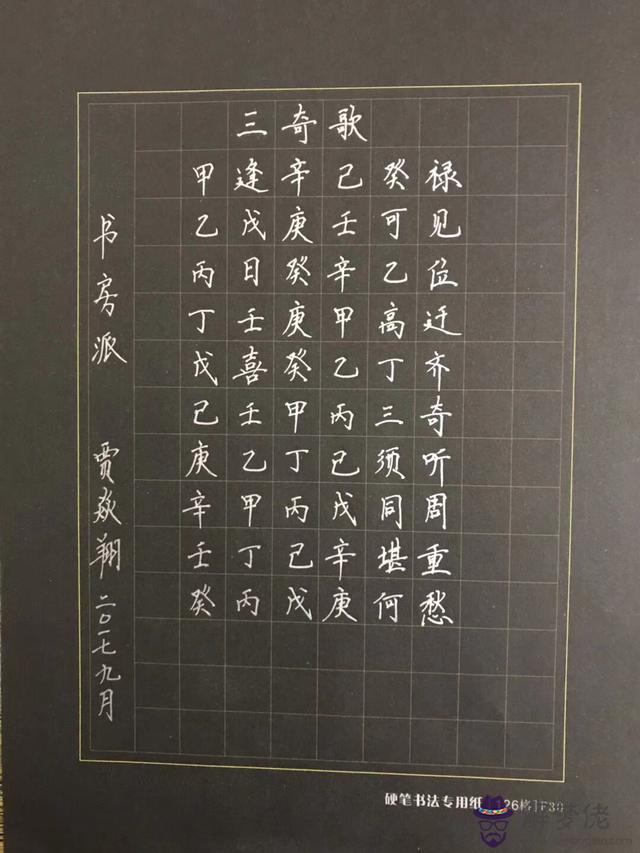 三奇歌
甲逢辛己癸禄
乙戊庚壬可见
丙日癸辛乙位
丁壬庚甲高迁
戊喜癸乙丁齐
己壬甲丙三奇
庚乙丁己须听
辛甲丙戊同周
壬丁己辛堪重
癸丙戊庚何愁
书房派 贾焱翔 二〇一七九月
硬笔书法专用纸
126格